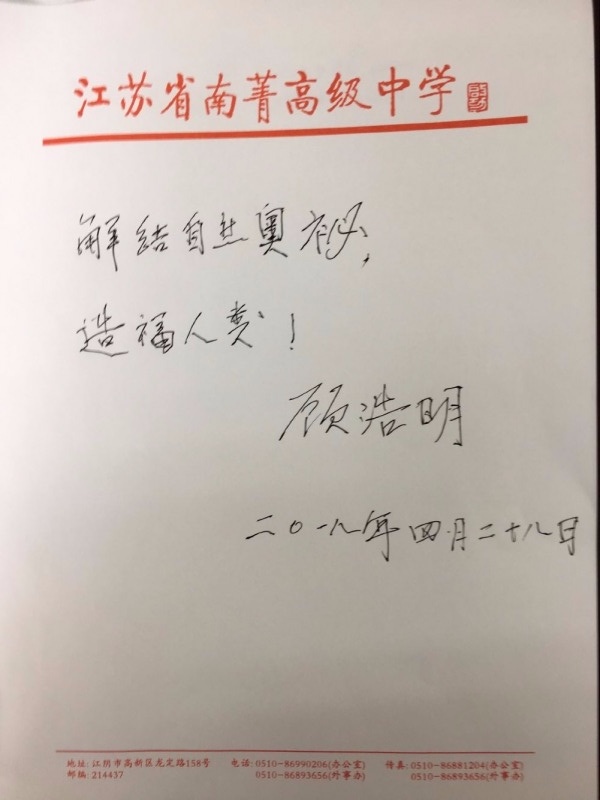 江苏省南菁高级中学
解结自然奥秘,
造福人类!
顾浩明
二〇一八年四月二十八日
地址:江阴市高新区龙定路158号 电话:0510-86990206(办公室) 传真:0510-86881204(办公室)
邮编:214437 0510-86893656(外事办) 0510-86893656(外事办)